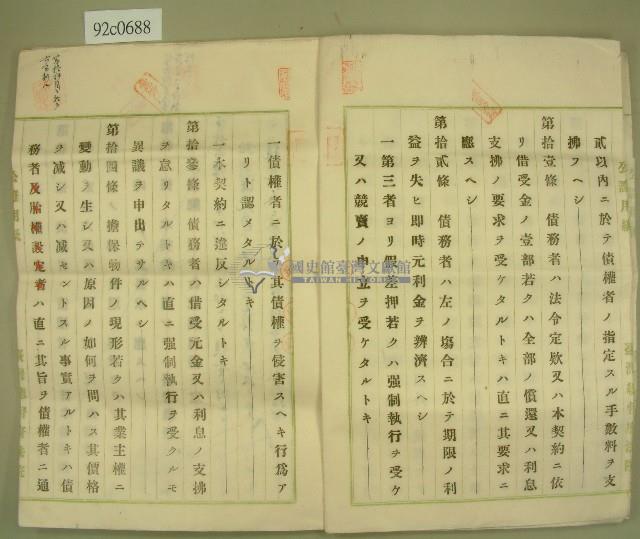 92c0688
貳以內ニ於テ債權者ノ指定スル手數料ヲ支
拂フヘシ
第拾壹條 債務者ハ法令定欵又ハ本契約ニ依
リ借受金ノ壹部若クハ全部ノ償還又ハ利息
支拂ノ要求ヲ受ケタルトキハ直ニ其要求ニ
應スヘシ
第拾貳條 債務者ハ左ノ塲合ニ於テ期限ノ利
益ヲ失ヒ即時元利金ヲ辨濟スヘシ
一第三者ヨリ假差押若クハ强制執行ヲ受ケ
又ハ競賣ノ申立ヲ受ケタルトキ
一債權者ニ於テ其債權ヲ侵害スヘキ行爲ア
リト認メタルトキ
一本契約ニ違反シタルトキ
第拾參條 債務者ハ借受元金又ハ利息ノ支拂
ヲ怠リタルトキハ直ニ强制執行ヲ受クルモ
異議ヲ申出テサルヘシ
第拾四條 擔保物件ノ現形若クハ其業主權ニ
變動ヲ生シ又ハ原因ノ如何ヲ問ハス其價格
ヲ减シ又ハ减セントスル事實アルトキハ債
務者及胎權設定者ハ直ニ其旨ヲ債權者ニ通
國史館臺灣文獻館
TAIWAN HISTORICA